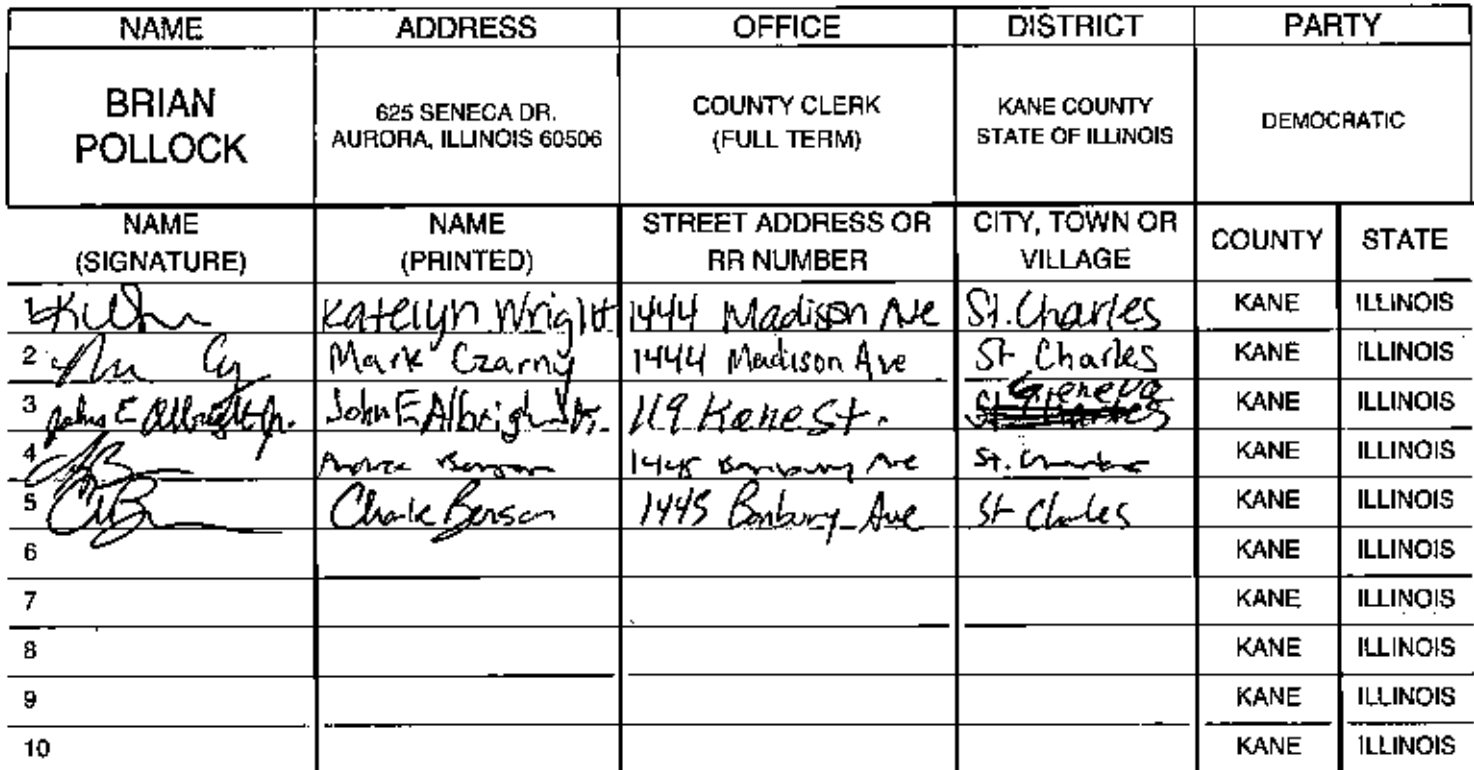 NAME ADDRESS OFFICE DISTRICT PARTY
BRIAN POLLOCK 625 SENECA DR. AURORA, ILLINOIS 60506 COUNTY CLERK (FULL TERM) KANE COUNTY STATE OF ILLINOIS DEMOCRATIC
NAME (SIGNATURE) NAME (PRINTED) STREET ADDRESS OR RR NUMBER CITY, TOWN OR VILLAGE COUNTY STATE
1 Katelyn Wright 1444 Madison Ave St. Charles KANE ILLINOIS
2 Mark Czarny 1444 Madison Ave St Charles KANE ILLINOIS
3 John E Albright Jr. John E Albright Jr. 119 Kane St. Geneva KANE ILLINOIS
4 Ave St. KANE ILLINOIS
5 Benson 1445 Banbury Ave St Charles KANE ILLINOIS
6 KANE ILLINOIS
7 KANE ILLINOIS
8 KANE ILLINOIS
9 KANE ILLINOIS
10 KANE ILLINOIS